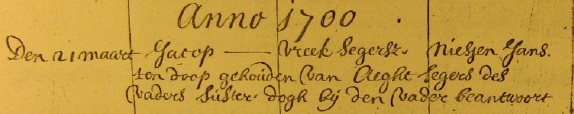 Anno 1700.
Den 21 maart Jacop — Vreek Segersz. Niesen Jans.
ten doop gehouden van Aeght Segers des
vaders suster. dogh bij den vader beantwort